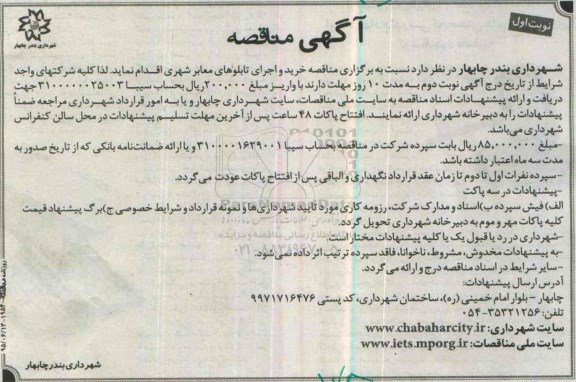 نوبت اول
آگهی مناقصه
شهرداری بندر چابهار
شهرداری بندر چابهار در نظر دارد نسبت به برگزاری مناقصه خرید و اجرای تابلوهای معابر شهری اقدام نماید. لذا کلیه شرکتهای واجد
شرایط از تاریخ درج آگهی نوبت دوم به مدت ۱۰ روز مهلت دارند با واریز مبلغ ۲۰۰,۰۰۰ ریال بحساب سیبا ۳۱۰۰۰۰۰۰۲۵۰۰۳ جهت
دریافت و ارائه پیشنهادات اسناد مناقصه به سایت ملی مناقصات، سایت شهرداری چابهار و یا به امور قرارداد شهرداری مراجعه ضمناً
پیشنهادات را به دبیرخانه شهرداری ارائه نمایند. افتتاح پاکات ۴۸ ساعت پس از آخرین مهلت تسلیم پیشنهادات در محل سالن کنفرانس
شهرداری می‌باشد.
-مبلغ ۸۵,۰۰۰,۰۰۰ ریال بابت سپرده شرکت در مناقصه بحساب سیبا ۳۱۰۰۰۰۱۶۲۹۰۰۱ و یا ارائه ضمانت‌نامه بانکی که از تاریخ صدور به
مدت سه ماه اعتبار داشته باشد.
-سپرده نفرات اول تا دوم تا زمان عقد قرارداد نگهداری و الباقی پس از افتتاح پاکات عودت می‌گردد.
-پیشنهادات در سه پاکت
الف) فیش سپرده ب)اسناد و مدارک شرکت، رزومه کاری مورد تایید شهرداری‌ها و نمونه قرارداد و شرایط خصوصی ج)برگ پیشنهاد قیمت
کلیه پاکات مهر و موم به دبیرخانه شهرداری تحویل گردد.
-شهرداری در رد یا قبول یک یا کلیه پیشنهادات مختار است.
-به پیشنهادات مخدوش، مشروط، ناخوانا، فاقد سپرده ترتیب اثر داده نمی‌شود.
-سایر شرایط در اسناد مناقصه درج و ارائه می‌گردد.
آدرس ارسال پیشنهادات:
چابهار - بلوار امام خمینی (ره)، ساختمان شهرداری، کد پستی ۹۹۷۱۷۱۶۴۷۶
تلفن: ۳۵۳۲۱۲۵۶-۰۵۴
سایت شهرداری: www.chabaharcity.ir
سایت ملی مناقصات: www.iets.mporg.ir
شهرداری بندر چابهار